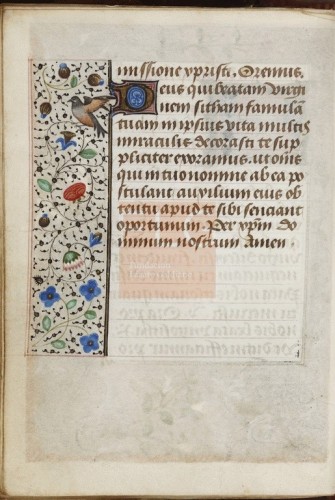 missione xpristi. Oremus.
Deus qui beatam virgi
nem sitham famulā
tuam in ipsius vita multis
miraculis decorasti te sup
pliciter exoramus. ut omīs
qui in tuo nomine ab ea po
stulant auxilium eius ob
tentu apud te sibi senciant
oportunum. Per xp̄m do
minum nostrum Amen.